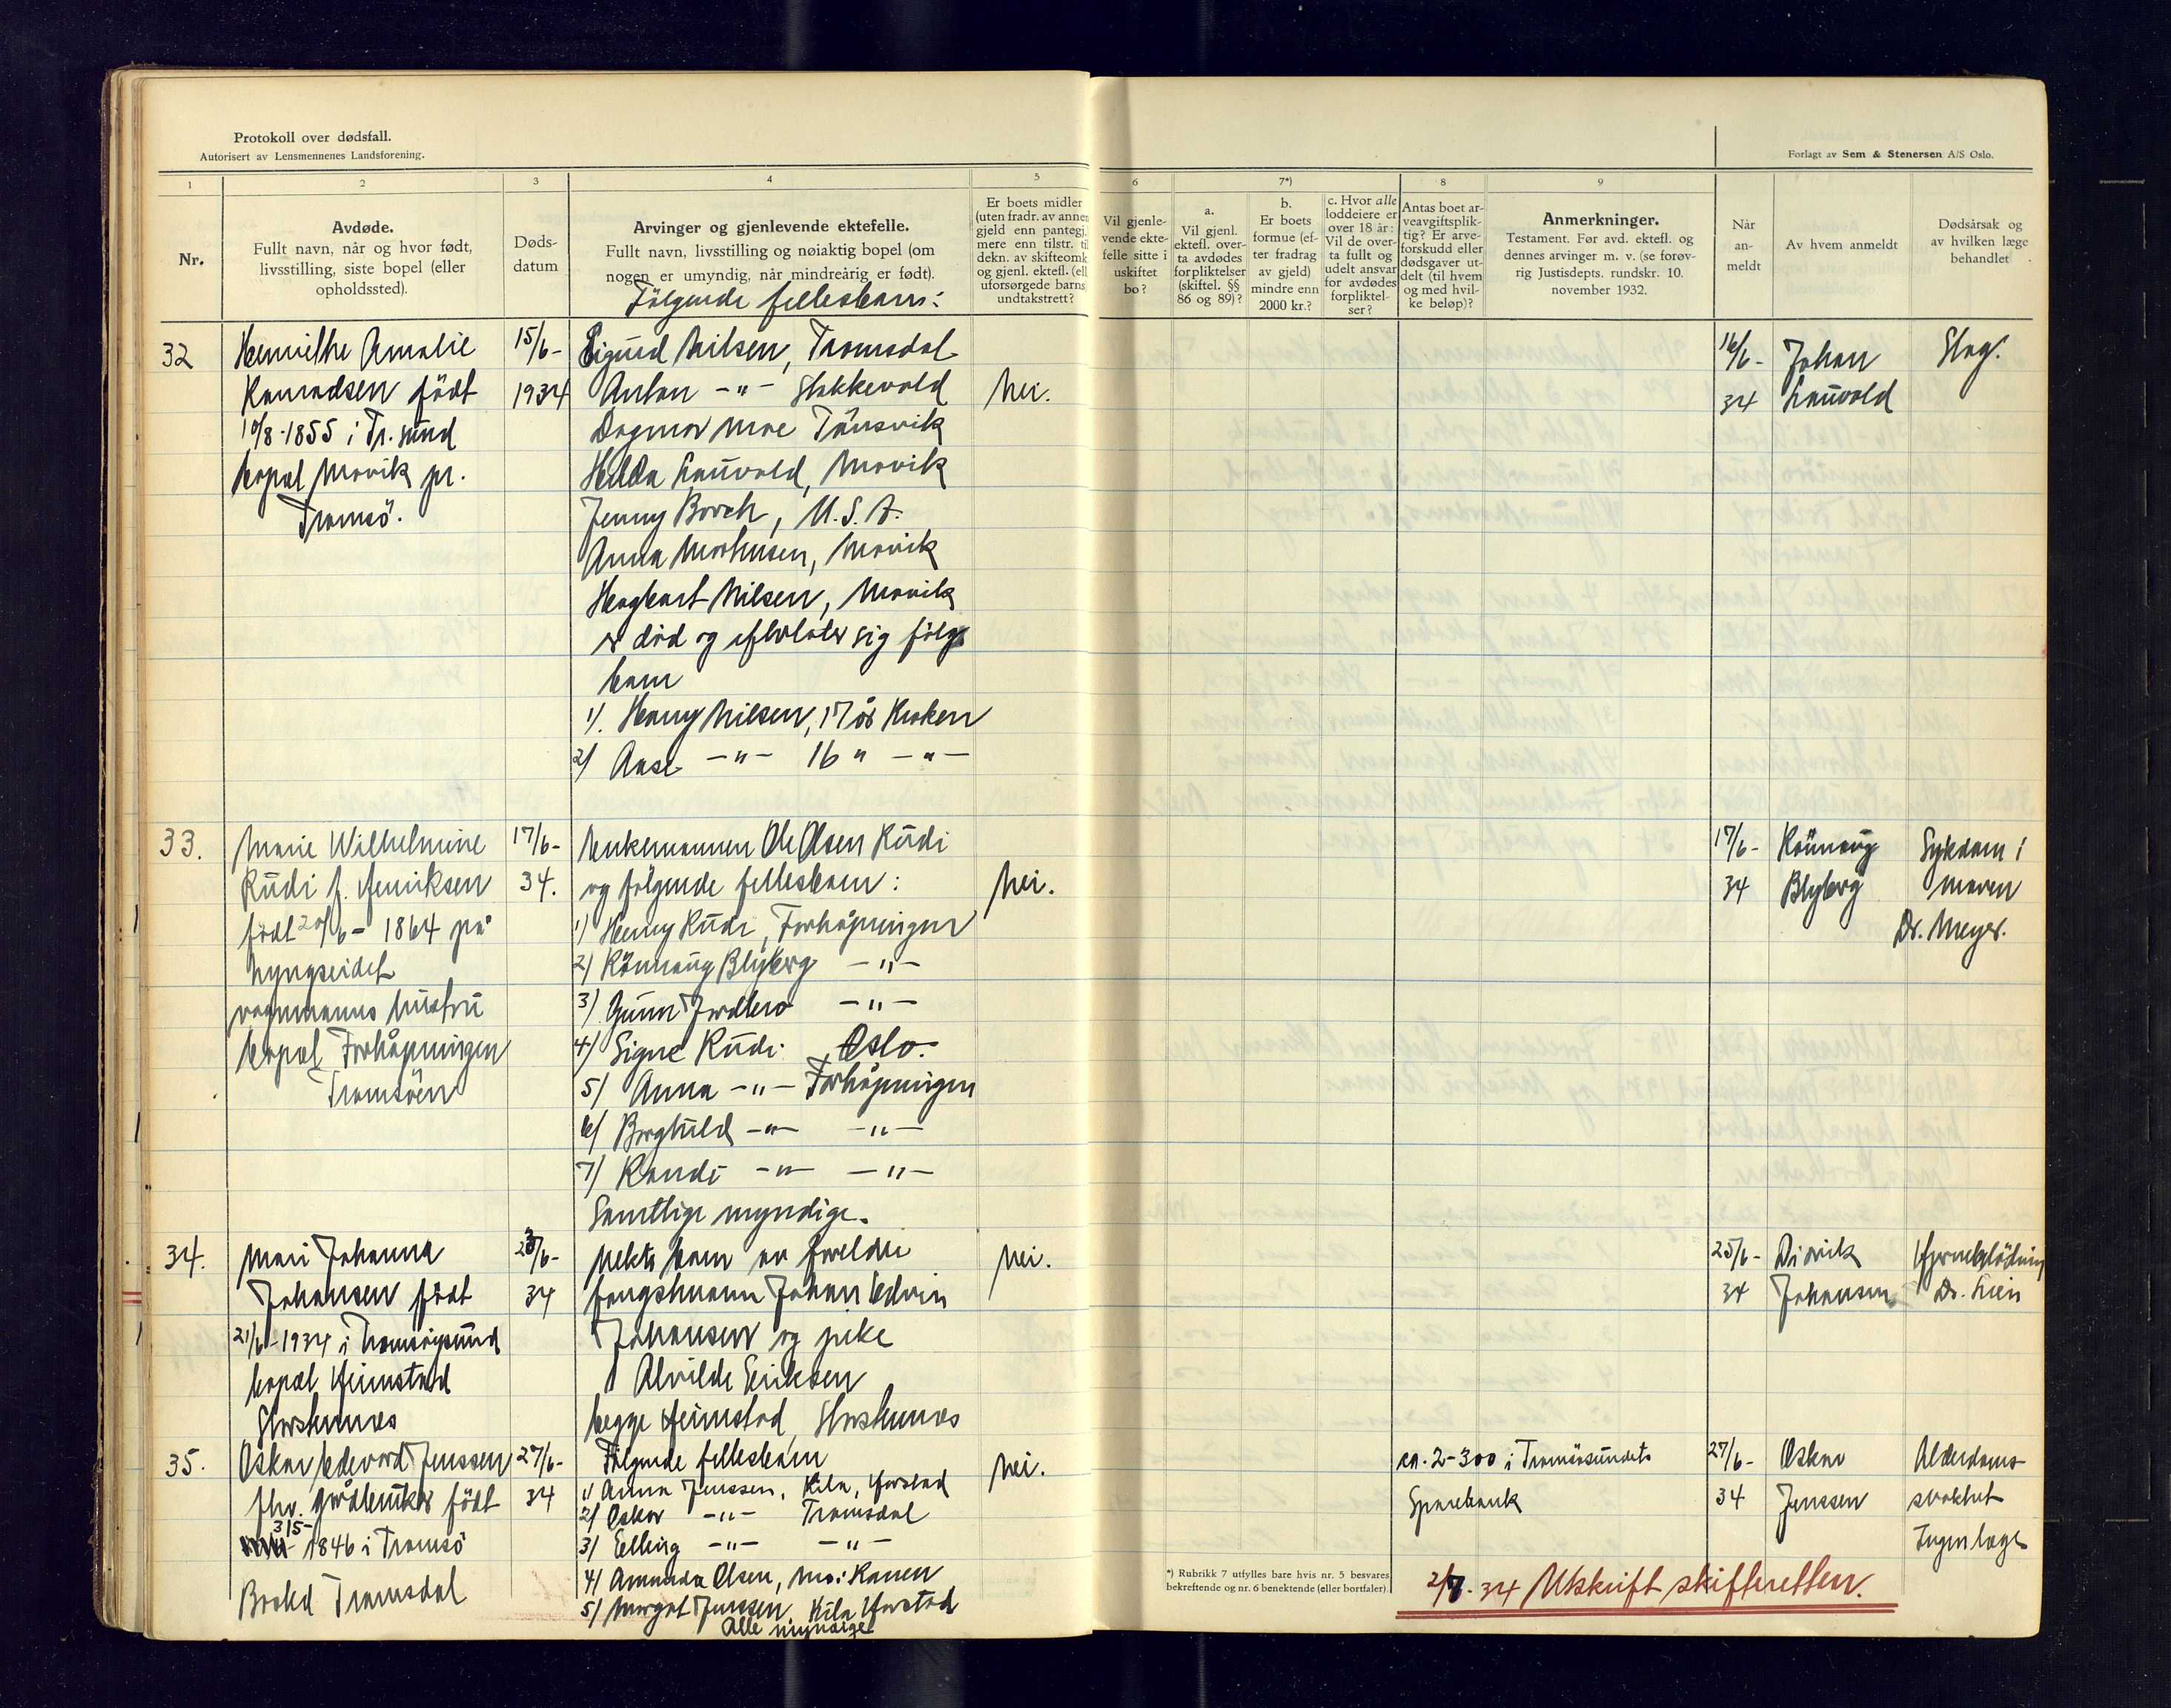 Protokoll over dødsfall.
Autorisert av Lensmennenes Landsforening.
Forlagt av Sem & Stenersen A/S Oslo.
1
2
3
4
5
6
7*)
8
9
Nr.
Avdøde.
Fullt navn, når og hvor født,
livsstilling, siste bopel (eller
opholdssted).
Døds-
datum
Arvinger og gjenlevende ektefelle.
Fullt navn, livsstilling og nøiaktig bopel (om
nogen er umyndig, når mindreårig er født).
Er boets midler
(uten fradr. av annen
gjeld enn pantegj.
mere enn tilstr. til
dekn. av skifteomk.
og gjenl. ektef. (ell.
uforsørgede barns)
undtakstrett?
Vil gjenle-
vende ekte-
felle sitte i
uskiftet
bo?
a.
Vil gjenl.
ektefl. over-
ta avdødes
forpliktelser
(skiftel. §§
86 og 89)?
b.
Er boets
formue (ef-
ter fradrag
av gjeld)
mindre enn
2000 kr.?
c. Hvor alle
loddeiere er
over 18 år:
Vil de over-
ta fullt og
udelt ansvar
for avdødes
forpliktel-
ser?
Antas boet ar-
veavgiftsplik-
tig? Er arve-
forskudd eller
dødsgaver ut-
delt (til hvem
og med hvil-
ke beløp)?
Anmerkninger.
Testament. Før avd. ektefl. og
dennes arvinger m. v. (se forøv-
rig Justisdepts. rundskr. 10.
november 1932.
Når
an-
meldt
Av hvem anmeldt
Dødsårsak og
av hvilken læge
behandlet
Følgende fellesbarn:
32
Henriethe Amalie
Konradsen født
10/8-1855 i Tr.sund
bopæl Movik pr.
Tromsö.
15/6-
1934
Sigurd Nilsen, Tromsdal
Anton -"- Stakkevold
Dagmar Moe Tönsvik
Hilda Lauvold, Movik
Jenny Borch, U.S.A.
Anna Mortensen, Movik
Hagbart Nilsen, Movik
er död og efterlater sig följe
barn
1/. Henny Nilsen, 17 år Kroken
2/ Aase -"- 16 " -"-
Nei.
16/6-
34
Johan
Lauvold
Slag.
33.
Marie Wilhelmine
Rudi f. Henriksen
født 20/6- 1864 på
Lyngseidet
vognmanns hustru
bopæl Forhåpningen
Tromsöen
17/6-
34.
Enkemannen Ole Olsen Rudi
og følgende fellesbarn:
1) Henny Rudi, Forhåpningen
2) Rönnaug Blyberg -"-
3/ Gunn Jordbro -"-
4/ Signe Rudi Oslo.
5/ Anna -"- Forhåpningen
6/ Borghild -"- -"-
7/ Randi -"- -"-
Samtlige myndige.
Nei.
17/6-
34
Rönnaug
Blyberg
Sykdom i
maven
Dr. Meyer.
34.
Mari Johanna
Johansen født
21/6-1934 i Tromsøysund
bopæl Heimstad
Storsteinnes
23/6-
34
Nekte barn av foreldre
fangstmann Johan Edvin
Johansen og pike
Alvilde Eriksen
begge Heimstad, Storsteinnes
Nei.
25/6-
34
Didrik
Johansen
Hjerneblödning
Dr. Lien
35.
Oskar Edevard Jenssen
fhv. gårdbruker født
3/5-
1846 i Tromsö
Bosted Tromsdal
27/6-
34
Følgende fellesbarn
1/ Anna Jenssen, Kila, Harstad
2/ Oskar -"- Tromsdal
3/ Elling -"- -"-
4/ Amanda Olsen, Mo i Ranen
5/ Margot Jenssen, Kila Harstad
Alle myndige
Nei.
ca. 2-300 i Tromsösundets
Sparebank
27/6-
34
Oskar
Jenssen
Alderdoms-
svakhet
Ingen læge
*) Rubrikk 7 utfylles bare hvis nr. 5 besvares
bekreftende og nr. 6 benektende (eller bortfaler).
2/7-34 Utskrift skifteretten.